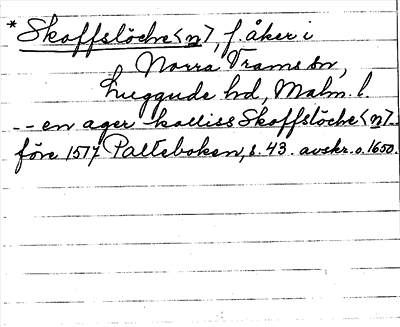 * Skoffslöche<n>, f. åker i
Norra Vrams sn,
Luggude hd, Malm. l.
-- en ager kalliss Skoffslöche<n>--
före 1517 Palteboken, s. 43. avskr. o. 1650.